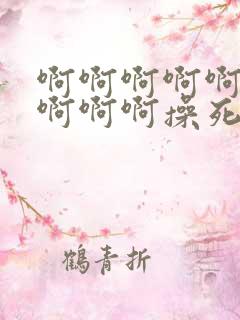 啊啊啊啊啊
啊啊啊操死
鶴青折